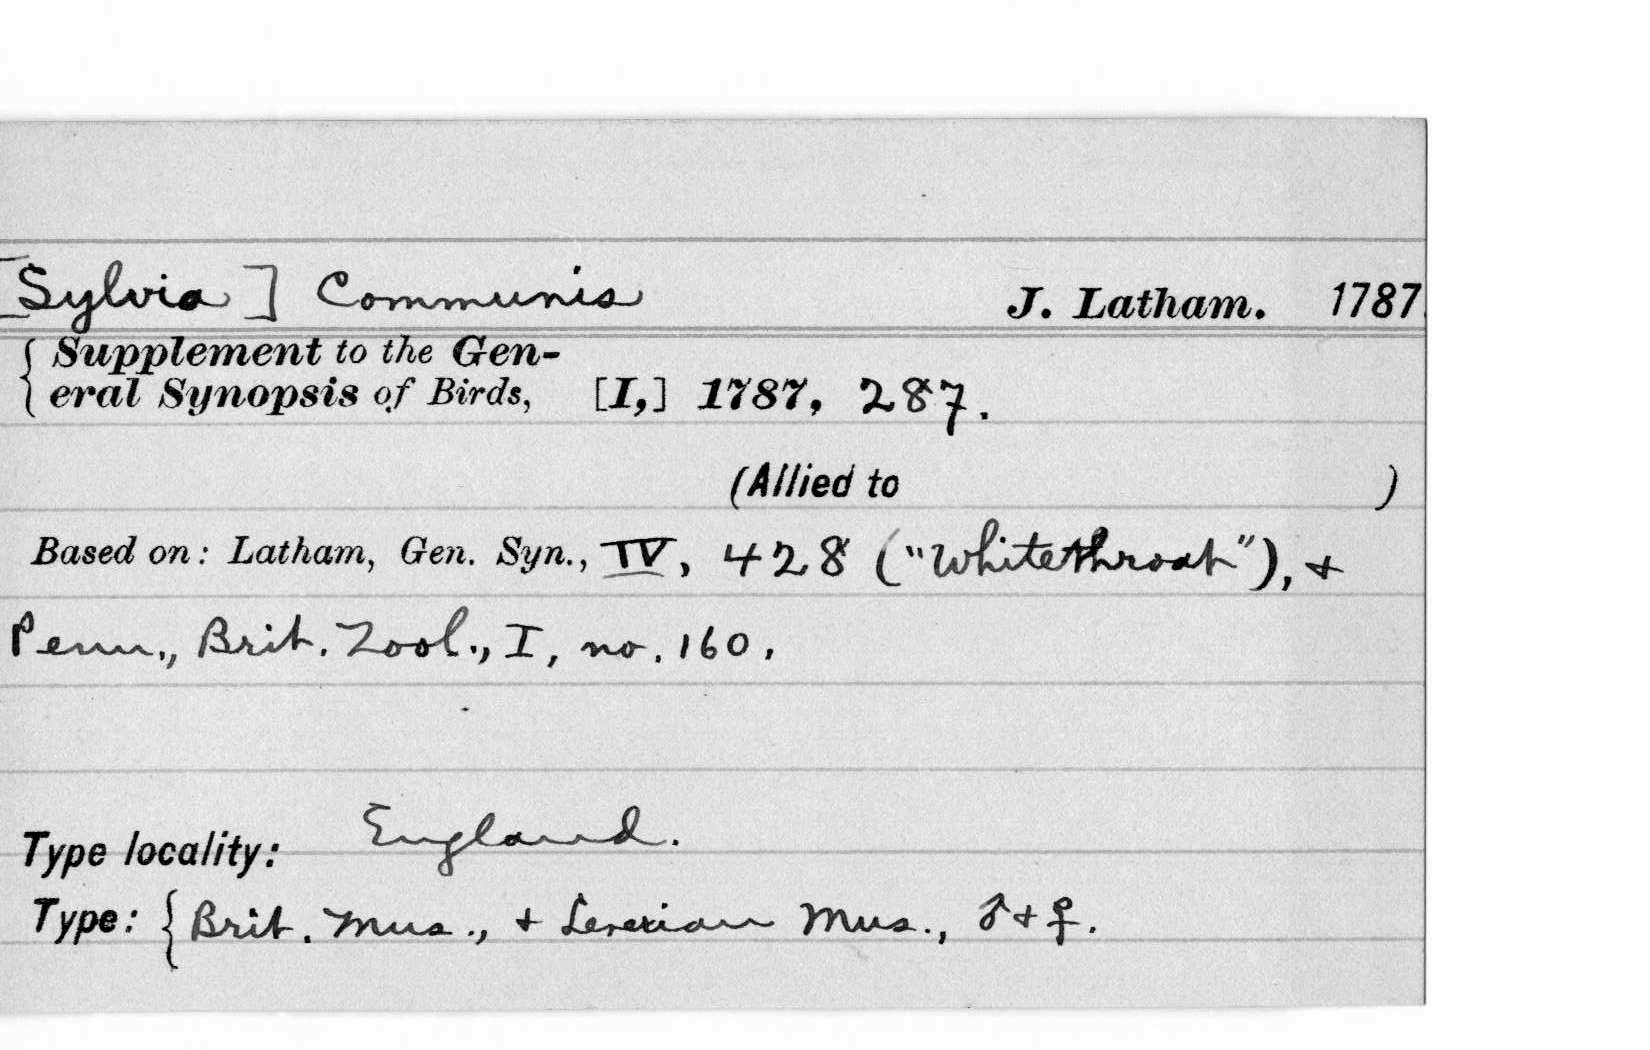 [Sylvia] Communis J. Latham. 1787.
{ Supplement to the Gen-
eral Synopsis of Birds, [I,] 1787, 287.
(Allied to )
Based on: Latham, Gen. Syn., IV, 428 ("Whitethroat"), +
Penn., Brit. Zool., I, no. 160.
Type locality: England.
Type: { Brit. Mus., + Leverian Mus., ♂ + ♀.